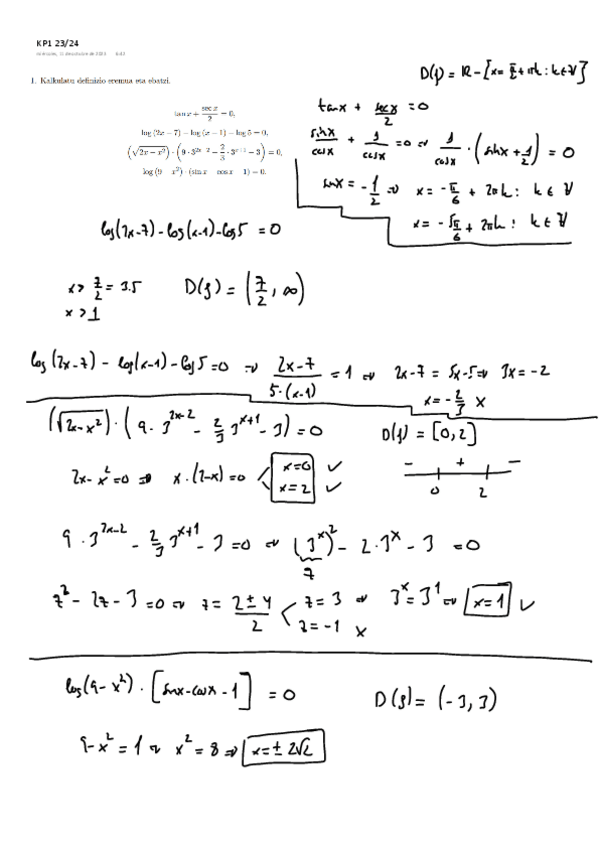 KP1 23/24
1. Kalkulatu definizio eremua eta ebatzi.
tan x + sec x / 2 = 0,
log (2x − 7) − log (x − 1) − log 5 = 0,
(√(2x − x²)) · (9 · 3^(2x−2) − 2/3 · 3^(x+1) − 3) = 0,
log (9 x²) · (sin x cos x 1) = 0.
D(f) = ℝ − {x = π/2 + πk : k ∈ ℤ}
tan x + sec x / 2 = 0
sin x / cos x + 1 / cos x = 0 ⇒ 1 / cos x · (sin x + 1/2) = 0
sin x = − 1/2 ⇒ x = − π/6 + 2πk : k ∈ ℤ
x = − 5π/6 + 2πk : k ∈ ℤ
log(2x-7) - log(x-1) - log 5 = 0
x > 7/2 = 3.5 D(f) = (7/2, ∞)
x > 1
log(2x-7) - log(x-1) - log 5 = 0 ⇒ 2x-7 / 5·(x-1) = 1 ⇒ 2x-7 = 5x-5 ⇒ 3x = -2
x = - 2/3 x
(√(2x-x²)) · (9·3^(2x-2) - 2/3 3^(x+1) - 3) = 0 D(f) = [0,2]
2x-x² = 0 ⇒ x·(2-x) = 0 < x=0 ✓
x=2 ✓
- + -
0 2
9·3^(2x-2) - 2/3 3^(x+1) - 3 = 0 ⇒ (3^x)² - 2·3^x - 3 = 0
z
z² - 2z - 3 = 0 ⇒ z = 2 ± 4 / 2 < z = 3 ⇒ 3^x = 3^1 ⇒ x=1 ✓
z = -1 x
log(9-x²) · [sin x - cos x - 1] = 0 D(f) = (-3, 3)
9-x² = 1 ⇒ x² = 8 ⇒ x = ± 2√2